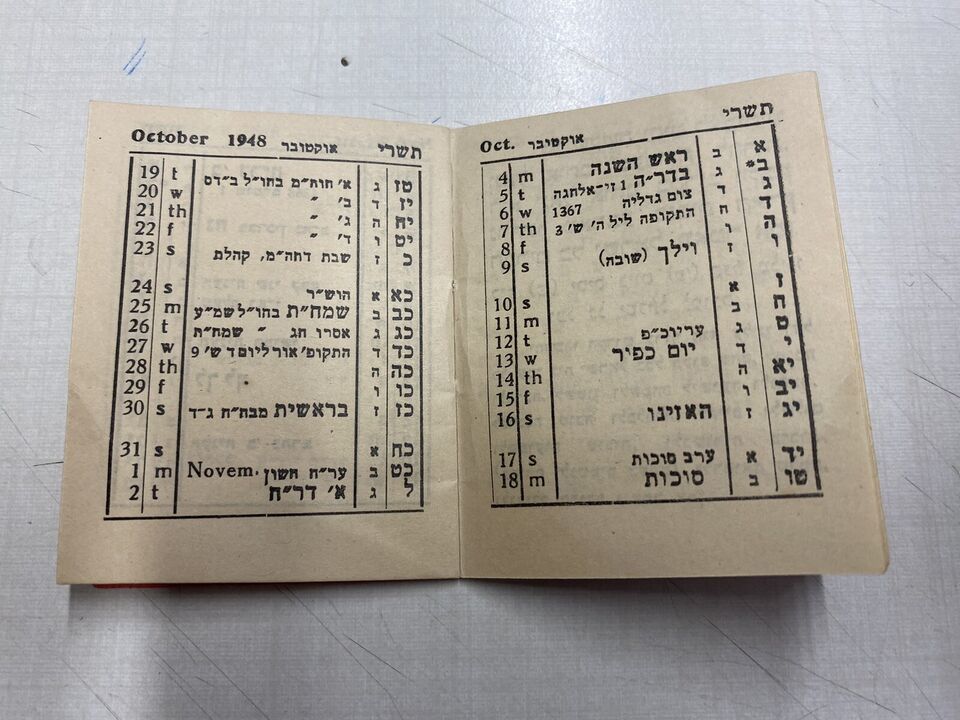 תשרי אוקטובר Oct.
א ב ראש השנה m 4
ב* ג בדר״ה 1 זי־אלחגה t 5
ג ד צום גדליה 1367 w 6
ד ה התקופה ליל ה׳ ש׳ 3 th 7
ה ו f 8
ו ז וילך (שובה) s 9
ז א s 10
ח ב m 11
ט ג עריוכ״פ t 12
י ד יום כפיר w 13
יא ה th 14
יב ו f 15
יג ז האזינו s 16
יד א ערב סוכות s 17
טו ב סוכות m 18
תשרי אוקטובר October 1948
טז ג א׳ חוה״מ בחו״ל ב״דס t 19
יז ד ב׳ ״ w 20
יח ה ג׳ ״ th 21
יט ו ד׳ ״ f 22
כ ז שבת דחה״מ, קהלת s 23
כא א הוש״ר s 24
כב ב שמח״ת בחו״ל שמ״ע m 25
כג ג אסרו חג ״ שמח״ת t 26
כד ד התקופ׳ אור ליום ד ש׳ 9 w 27
כה ה th 28
כו ו f 29
כז ז בראשית מבה״ח ג־ד s 30
כח א s 31
כט ב ער״ח חשון Novem. m 1
ל ג א׳ דר״ח t 2